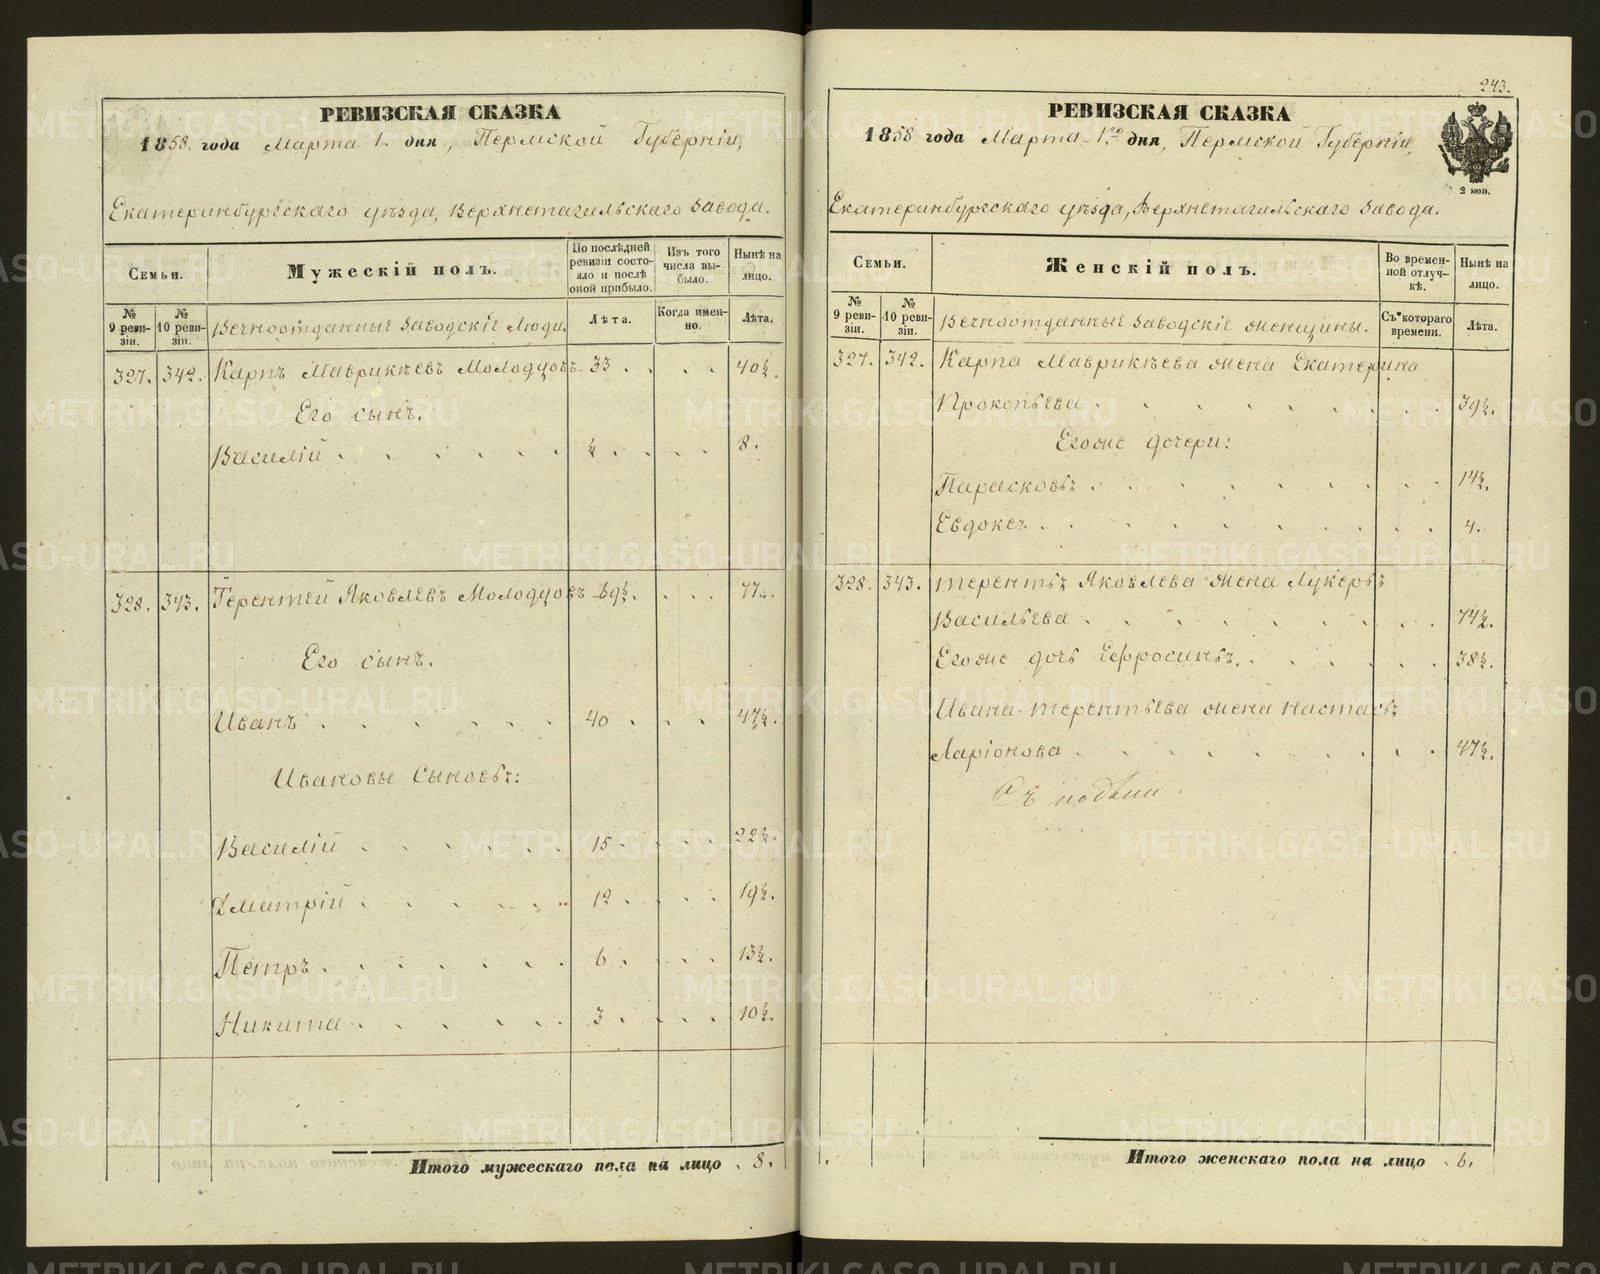 РЕВИЗСКАЯ СКАЗКА
1858 года Марта 1. дня, Пермской Губерніи,
Екатеринбургскаго уѣзда, Верхнетагильскаго Завода.
Семьи.
Мужескій полъ.
По послѣдней ревизіи состояло и послѣ оной прибыло.
Изъ того числа выбыло.
Нынѣ на лицо.
№ 9 ревизіи.
№ 10 ревизіи.
Вечноотданные Заводскіе Люди.
Лѣта.
Когда именно.
Лѣта.
327. 342. Карпъ Маврикѣевъ Молодцовъ 33 40½.
Его сынъ.
Василій ½ 8.
328. 343. Терентей Яковлевъ Молодцовъ 69½. 77.
Его сынъ.
Иванъ 40 47½.
Ивановы Сыновья:
Василій 15. 22½.
Дмитрій 12 19½.
Петръ 6. 13½.
Никита 3. 10½.
Итого мужескаго пола на лицо 8.
243.
РЕВИЗСКАЯ СКАЗКА
1858 года Марта 1го дня, Пермской Губерніи,
2 коп.
Екатеринбургскаго уѣзда, Верхнетагильскаго Завода.
Семьи.
Женскій полъ.
Во временной отлучкѣ.
Нынѣ на лицо.
№ 9 ревизіи.
№ 10 ревизіи.
Вечноотданные Заводскіе женщины.
Съ котораго времени.
Лѣта.
327. 342. Карпа Маврикѣева жена Екатерина
Прокопьева 39½.
Егоже дочери:
Парасковья 14½.
Евдокея 4.
328. 343. Терентья Яковлева жена Лукерья
Васильева 74½.
Егоже дочь Ефросинья 38½.
Ивана Терентьева жена Настасья
Ларіонова 47½.
Итого женскаго пола на лицо 6.
METRIKI.GASO-URAL.RU